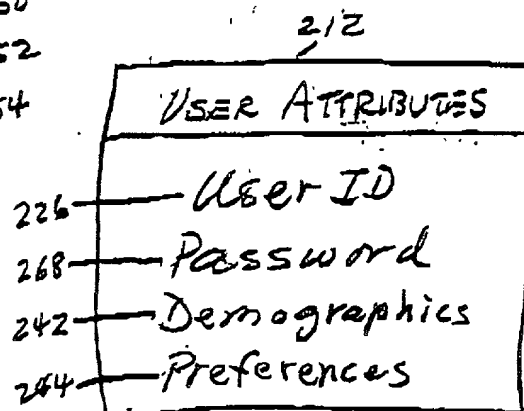 212
52
54
USER ATTRIBUTES
226 User ID
268 Password
242 Demographics
Preferences